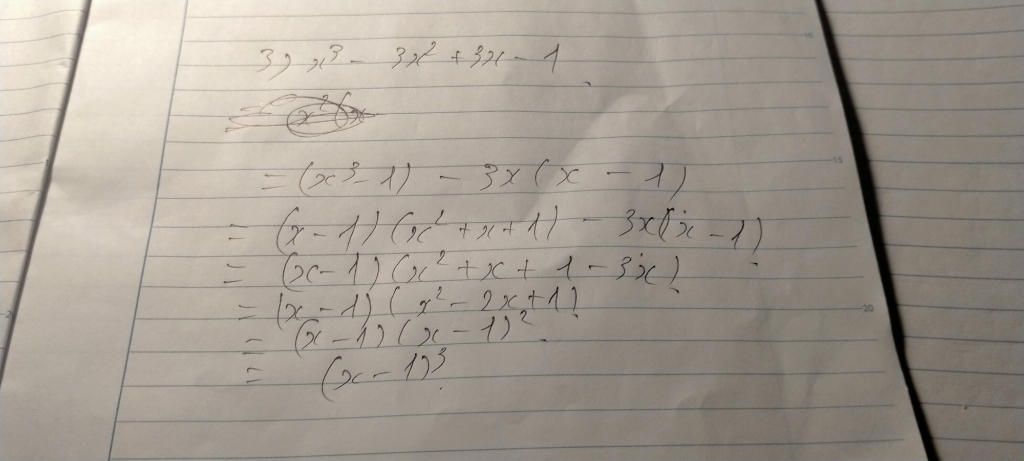 3) x³ - 3x² + 3x - 1
= (x³ - 1) - 3x (x - 1)
= (x - 1) (x² + x + 1) - 3x (x - 1)
= (x - 1) (x² + x + 1 - 3x)
= (x - 1) (x² - 2x + 1)
= (x - 1) (x - 1)²
= (x - 1)³